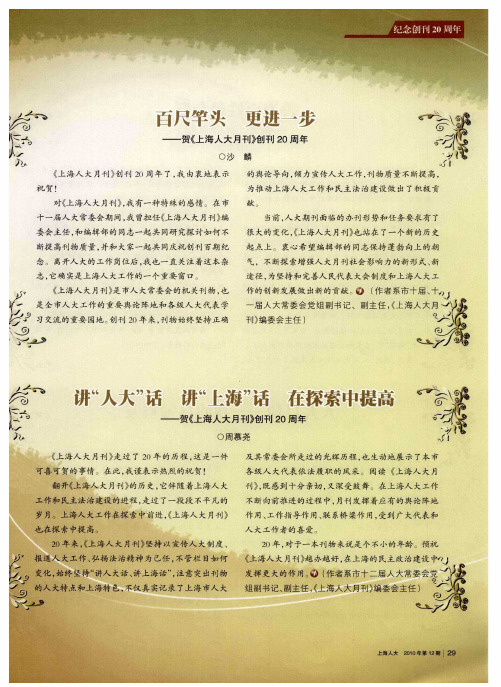 纪念创刊20周年
百尺竿头 更进一步
——贺《上海人大月刊》创刊20周年
○沙 麟
《上海人大月刊》创刊20周年了,我由衷地表示
祝贺!
对《上海人大月刊》,我有一种特殊的感情。在市
十一届人大常委会期间,我曾担任《上海人大月刊》编
委会主任,和编辑部的同志一起共同研究探讨如何不
断提高刊物质量,并和大家一起共同庆祝创刊百期纪
念。离开人大的工作岗位后,我也一直关注着这本杂
志,它确实是上海人大工作的一个重要窗口。
《上海人大月刊》是市人大常委会的机关刊物,也
是全市人大工作的重要舆论阵地和各级人大代表学
习交流的重要园地。创刊20年来,刊物始终坚持正确
的舆论导向,倾力宣传人大工作,刊物质量不断提高,
为推动上海人大工作和民主法治建设做出了积极贡
献。
当前,人大期刊面临的办刊形势和任务要求有了
很大的变化,《上海人大月刊》也站在了一个新的历史
起点上。衷心希望编辑部的同志保持蓬勃向上的朝
气,不断探索增强人大月刊社会影响力的新形式、新
途径,为坚持和完善人民代表大会制度和上海人大工
作的创新发展做出新的贡献。(作者系市十届、十
一届人大常委会党组副书记、副主任,《上海人大月
刊》编委会主任)
讲“人大”话 讲“上海”话 在探索中提高
——贺《上海人大月刊》创刊20周年
○周慕尧
《上海人大月刊》走过了20年的历程,这是一件
可喜可贺的事情。在此,我谨表示热烈的祝贺!
翻开《上海人大月刊》的历史,它伴随着上海人大
工作和民主法治建设的进程,走过了一段段不平凡的
岁月。上海人大工作在探索中前进,《上海人大月刊》
也在探索中提高。
20年来,《上海人大月刊》坚持以宣传人大制度、
报道人大工作、弘扬法治精神为己任,不管栏目如何
变化,始终坚持“讲人大话、讲上海话”,注意突出刊物
的人大特点和上海特色,不仅真实记录了上海市人大
及其常委会所走过的光辉历程,也生动地展示了本市
各级人大代表依法履职的风采。阅读《上海人大月
刊》,既感到十分亲切,又深受鼓舞。在上海人大工作
不断向前推进的过程中,月刊发挥着应有的舆论阵地
作用、工作指导作用、联系桥梁作用,受到广大代表和
人大工作者的喜爱。
20年,对于一本刊物来说是个不小的年龄。预祝
《上海人大月刊》越办越好,在上海的民主政治建设中
发挥更大的作用。(作者系市十二届人大常委会党
组副书记、副主任,《上海人大月刊》编委会主任)
上海人大 2010年第12期 29